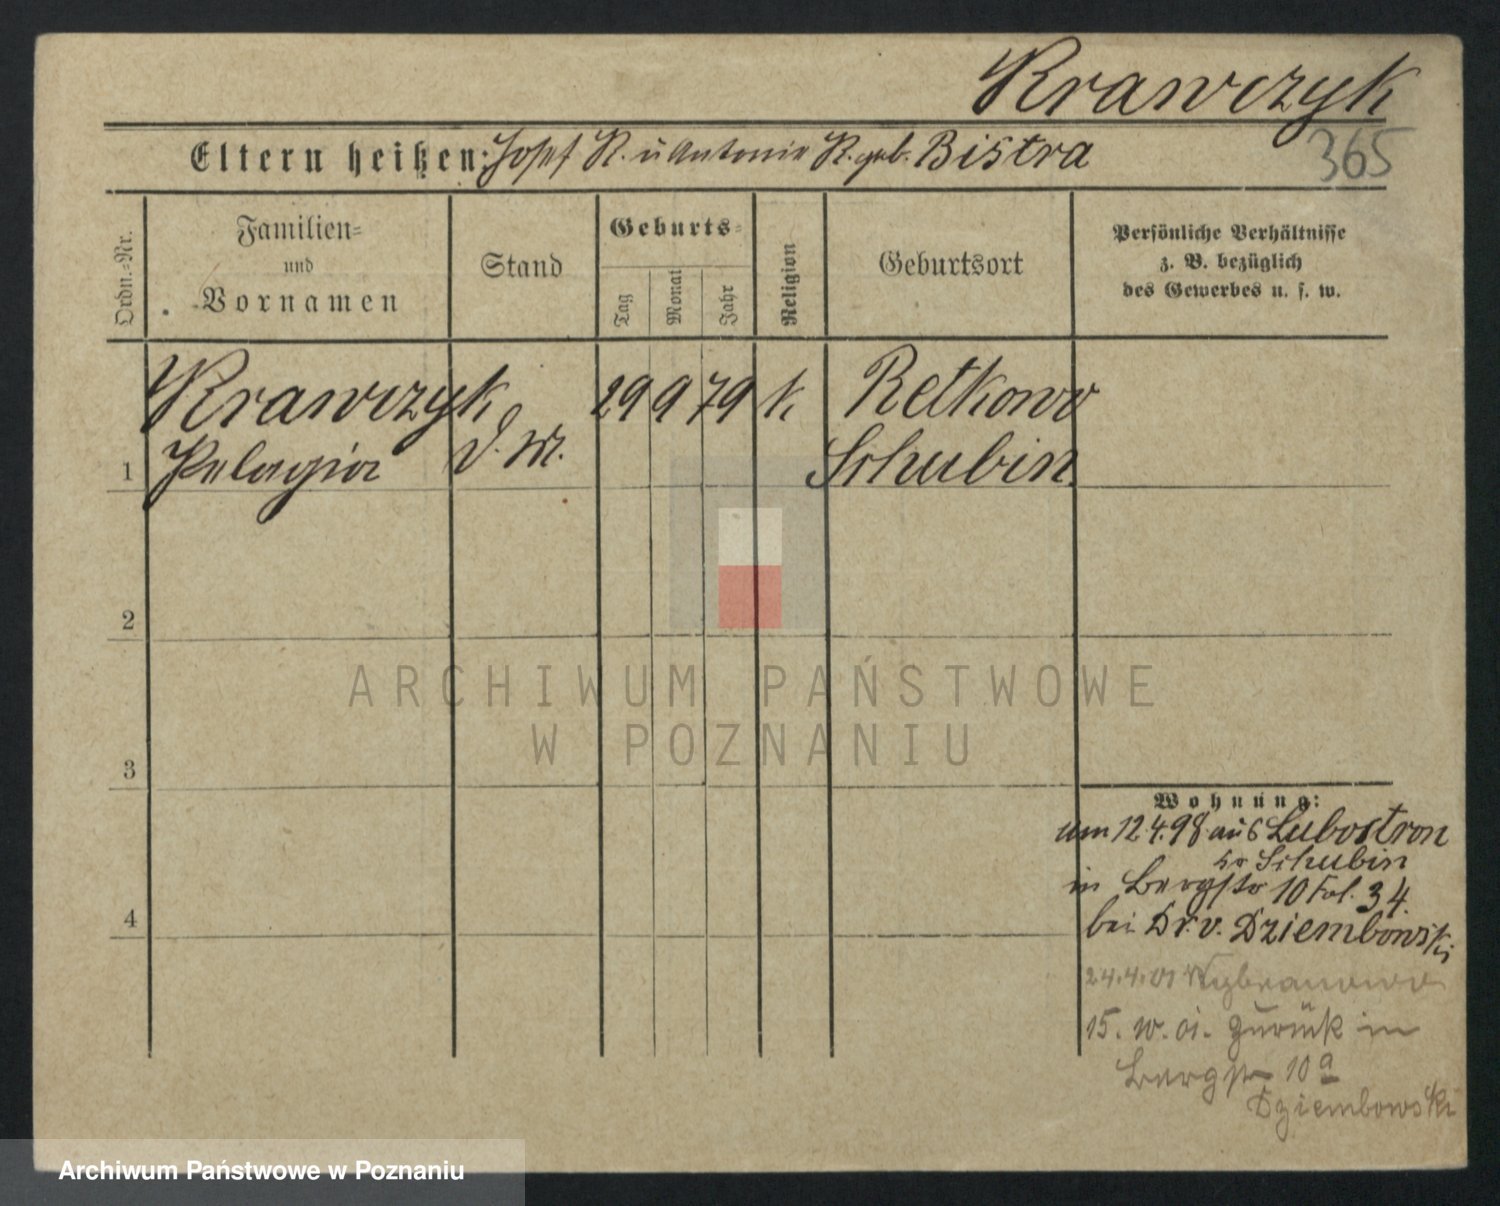 Krawczyk
365
Eltern heißen: Josef K. u Antonie K. geb. Bistra
Ordn.=Nr.
Familien=
und
Vornamen
Stand
Geburts=
Tag
Monat
Jahr
Religion
Geburtsort
Persönliche Verhältnisse
z. B. bezüglich
des Gewerbes u. s. w.
Krawczyk 29 9 79 k Retkowo
1 Pelagia d. M. Schubin
2
ARCHIWUM PAŃSTWOWE
W POZNANIU
3
Wohnung:
am 12.4.98 aus Lubostron
Kr Schubin
in Bergstr 10 Fol. 34.
4
bei Dr. v. Dziembowski
24.4.01
15. 10. 01. zurück in
Bergstr 10a
Dziembowski
Archiwum Państwowe w Poznaniu